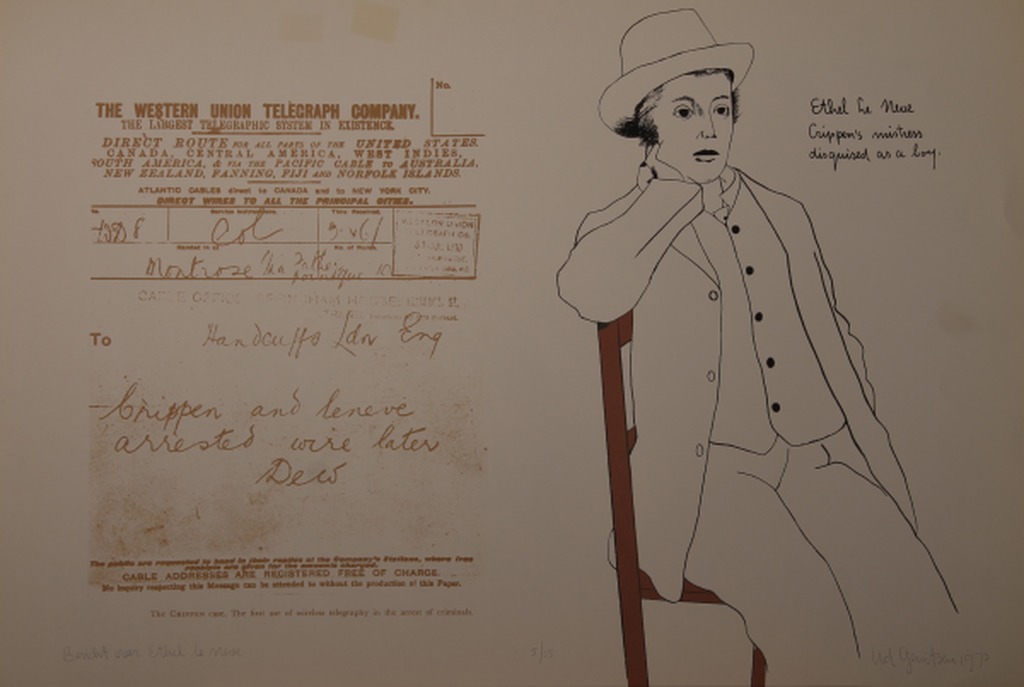 No.
THE WESTERN UNION TELEGRAPH COMPANY.
THE LARGEST TELEGRAPHIC SYSTEM IN EXISTENCE.
DIRECT ROUTE FOR ALL PARTS OF THE UNITED STATES.
CANADA, CENTRAL AMERICA, WEST INDIES,
SOUTH AMERICA, & VIA THE PACIFIC CABLE TO AUSTRALIA,
NEW ZEALAND, FANNING, FIJI AND NORFOLK ISLANDS.
ATLANTIC CABLES direct to CANADA and to NEW YORK CITY.
DIRECT WIRES TO ALL THE PRINCIPAL CITIES.
No. Service Instructions. Time Received.
Col
Handed in at No. of Words.
Montrose 10
CABLE OFFICE
To Handcuffs Ldn Eng
Crippen and leneve
arrested wire later
Dew
The public are requested to hand in their replies at the Company's Stations, where free
receipts are given for the amounts charged.
CABLE ADDRESSES ARE REGISTERED FREE OF CHARGE.
No inquiry respecting this Message can be attended to without the production of this Paper.
The CRIPPEN case. The first use of wireless telegraphy in the arrest of criminals.
Ethel Le Neve
Crippen's mistress
disguised as a boy.
Ethel le Neve